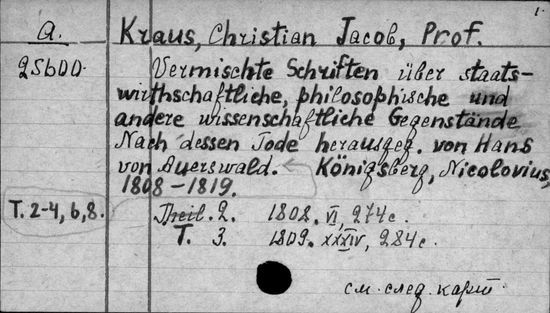 1.
a. Kraus, Christian Jacob, Prof.
25600. Vermischte Schriften über staats-
wirthschaftliche, philosophische und
andere wissenschaftliche Gegenstände
Nach dessen Tode herausgeg. von Hans
von Auerswald. Königsberg, Nicolovius,
1808-1819.
T. 2-4, 6, 8. Theil. 2. 1808. VI, 274c.
T. 3. 1809. XXXIV, 284c.
см. след. карт